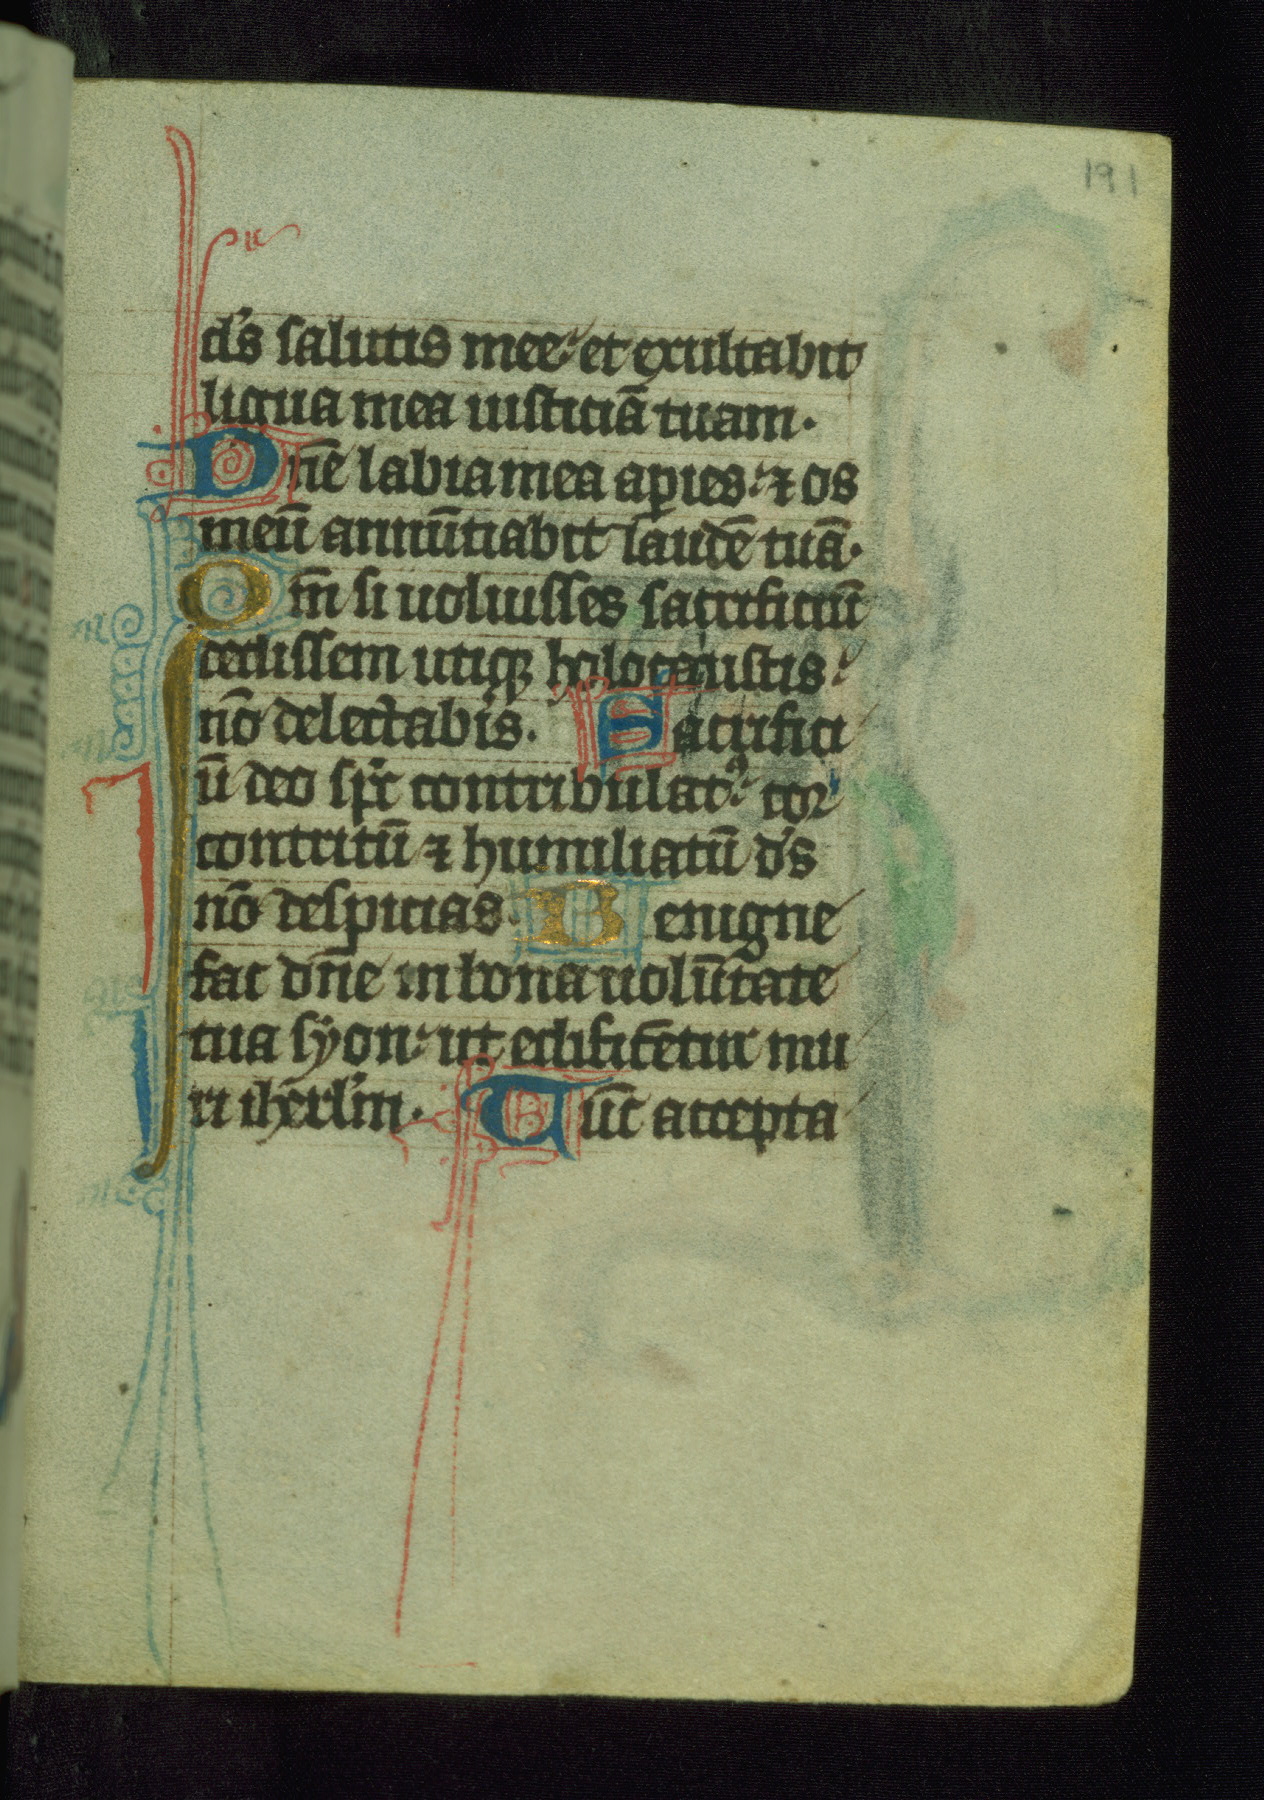 191
dr̄s salutis mee. et exultabit
ligua mea iusticiā tuam.
Dn̄e labia mea apies. ⁊ os
meū annūtiabit laudē tuā.
Qm̄ si uoluisses sacrificiū
dedissem utiqꝫ holocaustis.
nō delectab̄is. Sacrifici
ū deo sp̄c contribulatꝰ. cor
contritū ⁊ humiliatū d̄s
nō despicias. Benigne
fac dn̄e in bona uolūtate
tua syon. ut edificētur mu
ri ihers̄lm. Tūc accepta